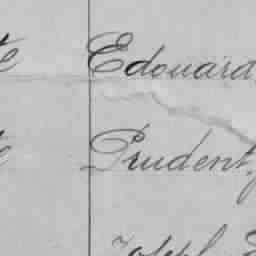 te Edouard
te Prudent,
Joseph